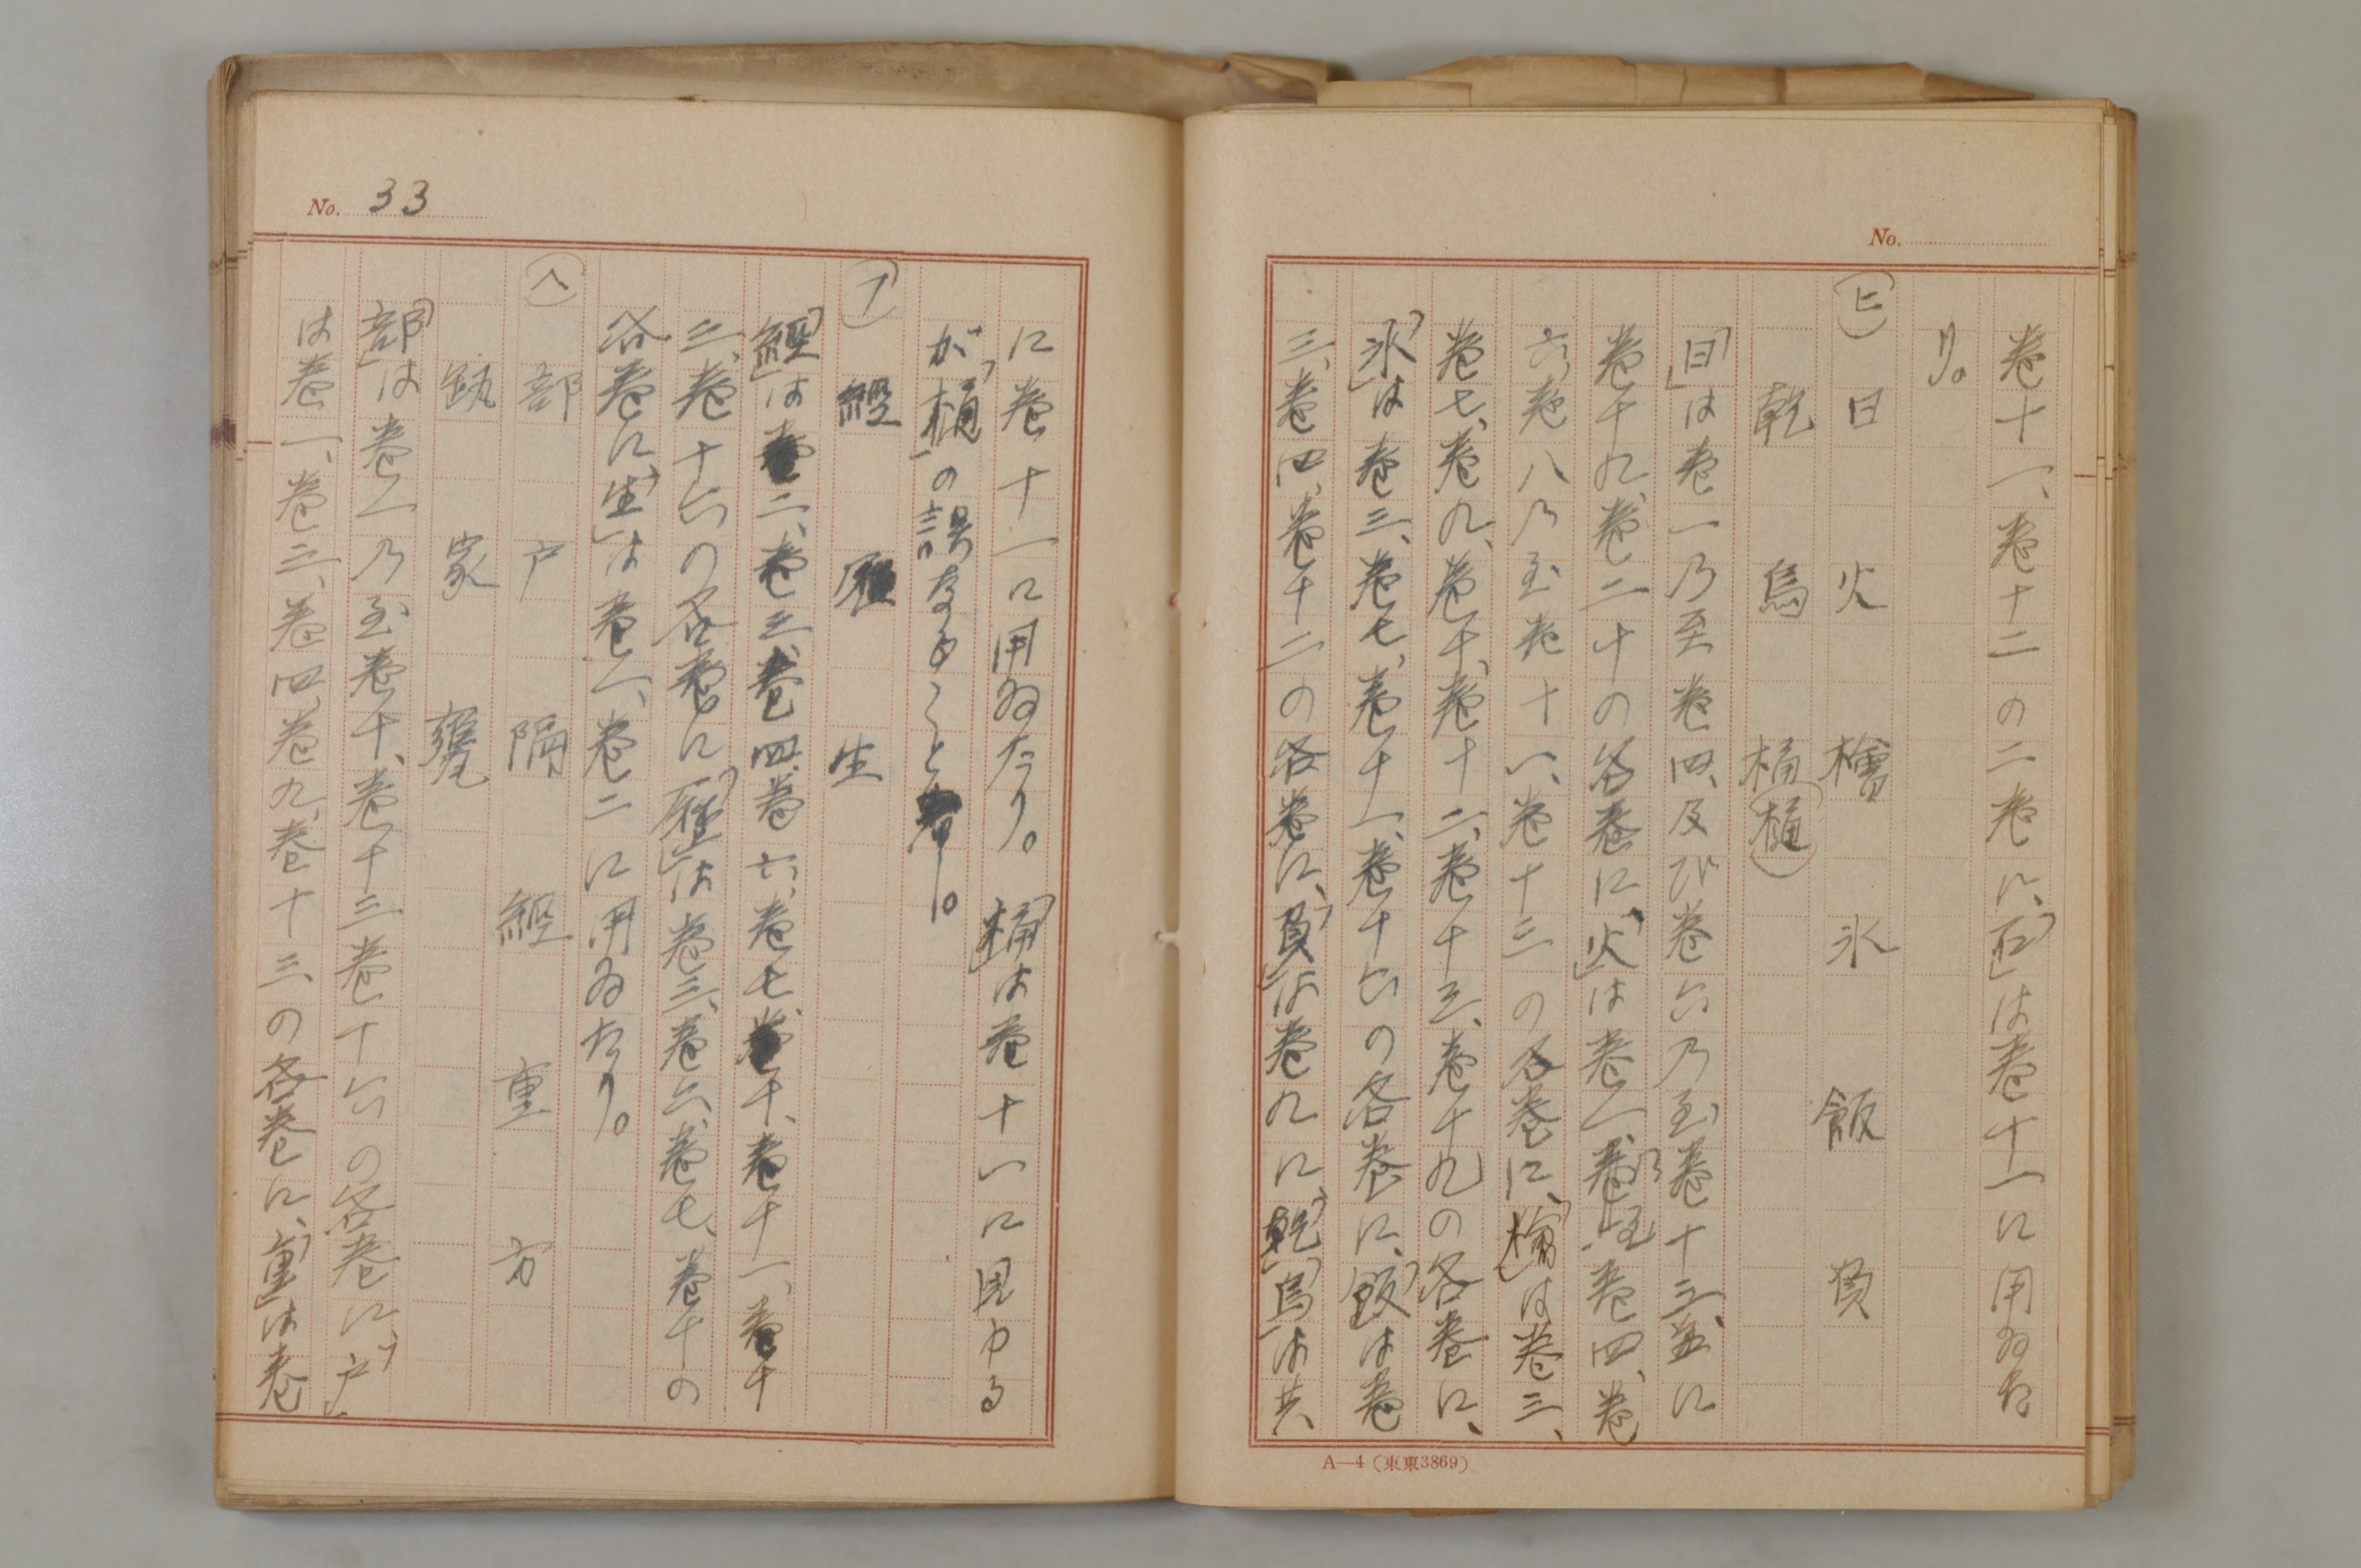 No.
巻十一、巻十二の二巻に、「石」は巻十一に用ゐた
り。
(ヒ)日 火 檜 氷 飯 負
乾 嶌 桶(樋)
「日」は巻一乃至巻四、及び巻六乃至巻十三並に
巻十九、巻二十の各巻に、「火」は巻一、乃至巻四、巻
六、巻八乃至巻十一、巻十三の各巻に、「檜」は巻三、
巻七、巻九、巻十、巻十二、巻十三、巻十九の各巻に、
「氷」は巻三、巻七、巻十一、巻十六の各巻に、「飯」は巻
三、巻四、巻十二の各巻に、「負」は巻九に、「乾」「嶌」は共
A—4(東東3869)
No. 33
に巻十一に用ゐたり。「桶」は巻十一に見ゆる
が、「樋」の誤なること著し。
(フ)經 歴 生
「經」は巻二、巻三、巻四、巻六、巻七、巻十、巻十一、巻十
三、巻十六の各巻に「歴」は巻三、巻六、巻七、巻十の
各巻に「生」は巻一、巻二に用ゐたり。
(ヘ)部 戸 隔 經 重 方
甂 家 甕
「部」は巻一乃至巻十、巻十三巻十六の各巻に「戸」
は巻一、巻三、巻四、巻九、巻十三の各巻に、「重」は巻